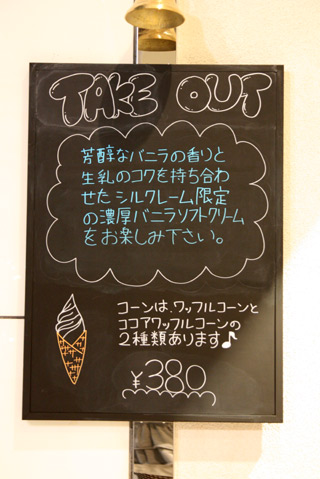 TAKE OUT
芳醇なバニラの香りと
生乳のコクを持ち合わ
せたシルクレーム限定
の濃厚バニラソフトクリーム
をお楽しみ下さい。
コーンは、ワッフルコーンと
ココアワッフルコーンの
2種類あります♪
¥380